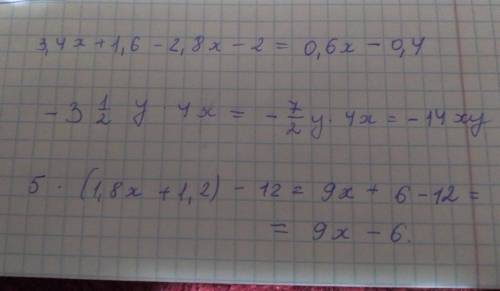 3,4x + 1,6 - 2,8x - 2 = 0,6x - 0,4
- 3 1/2 y · 4x = - 7/2 y · 4x = - 14xy
5 · (1,8x + 1,2) - 12 = 9x + 6 - 12 =
= 9x - 6.